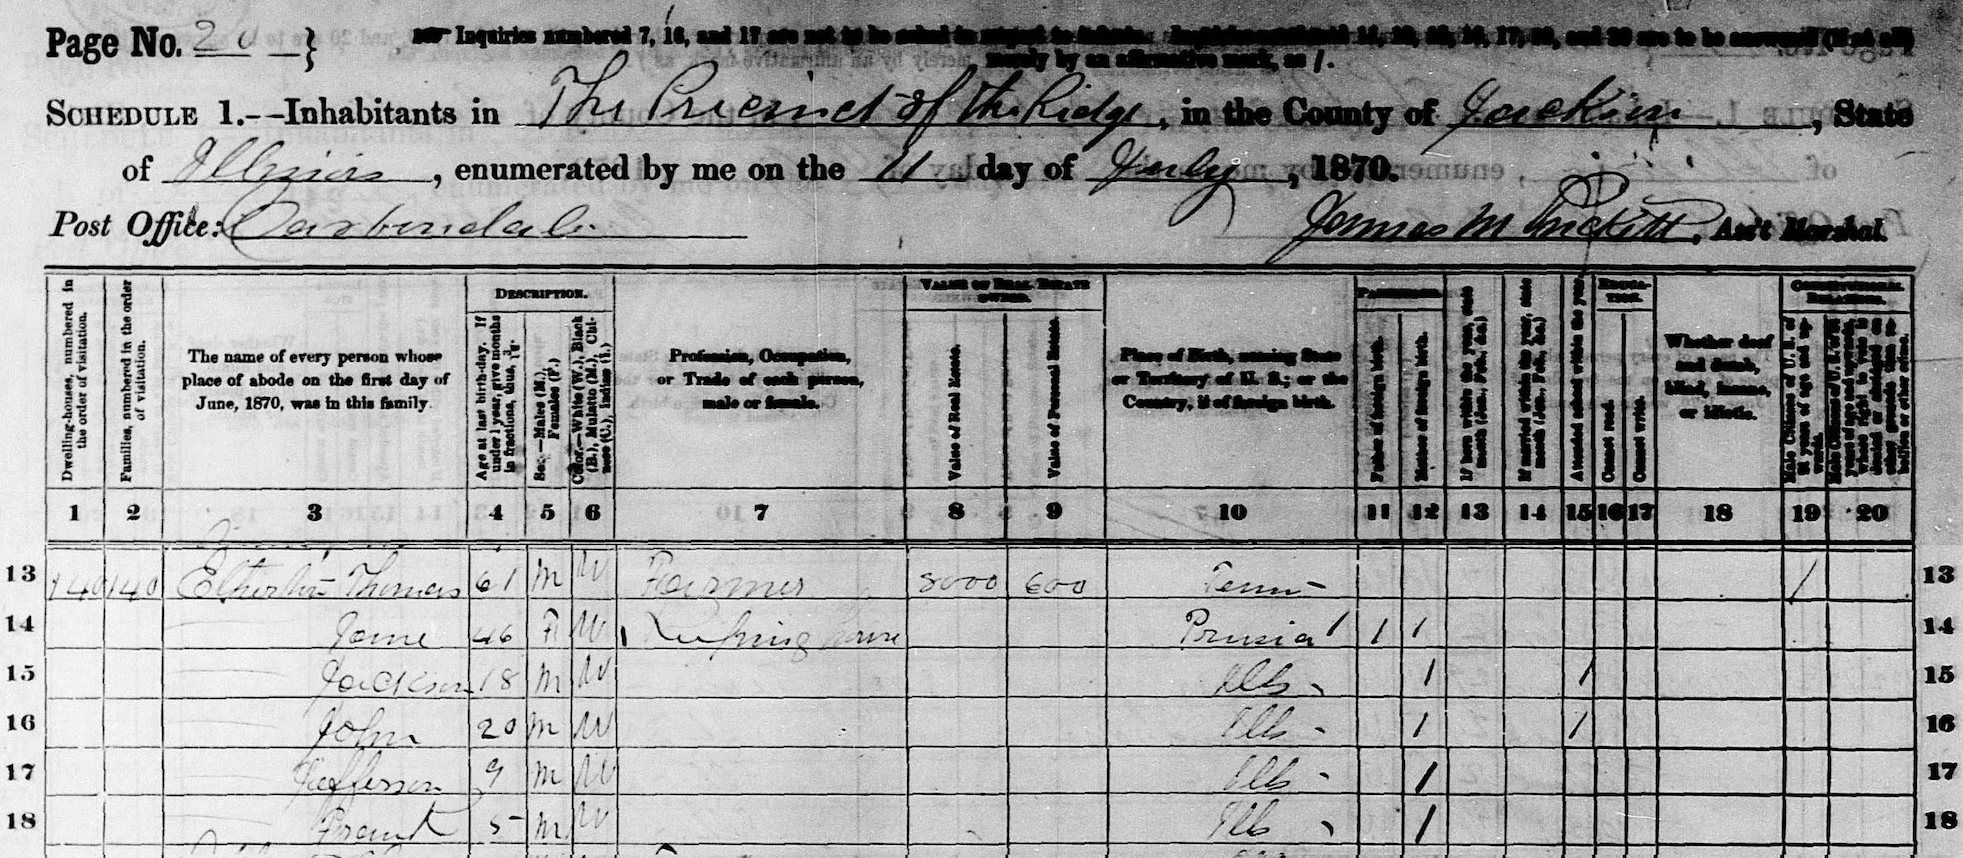 Page No. 20 }
Inquiries numbered 7, 16, and 17 are not to be asked in respect to infants. Inquiries numbered 11, 12, 15, 16, 17, 19, and 20 are to be answered (if at all)
merely by an affirmative mark, as /.
SCHEDULE 1.--Inhabitants in The Precinct of the Ridge, in the County of Jackson, State
of Illinois, enumerated by me on the 11 day of July, 1870.
Post Office: Carbondale
James M Prickett, Ass't Marshal.
Dwelling-houses, numbered in the order of visitation.
Families, numbered in the order of visitation.
The name of every person whose place of abode on the first day of June, 1870, was in this family.
DESCRIPTION.
Age at last birth-day. If under 1 year, give months in fractions, thus, 3/12.
Sex.—Males (M.), Females (F.)
Color.—White (W.), Black (B.), Mulatto (M.), Chinese (C.), Indian (I.)
Profession, Occupation, or Trade of each person, male or female.
VALUE OF REAL ESTATE OWNED.
Value of Real Estate.
Value of Personal Estate.
Place of Birth, naming State or Territory of U. S.; or the Country, if of foreign birth.
PARENTAGE.
Father of foreign birth.
Mother of foreign birth.
If born within the year, state month (Jan., Feb., &c.)
If married within the year, state month (Jan., Feb., &c.)
Attended school within the year.
EDUCATION.
Cannot read.
Cannot write.
Whether deaf and dumb, blind, insane, or idiotic.
CONSTITUTIONAL RELATIONS.
Male Citizens of U. S. of 21 years of age and upwards.
1 2 3 4 5 6 7 8 9 10 11 12 13 14 15 16 17 18 19 20
13 140 140 Thomas 61 M W Farmer 8000 600 Tenn / 13
14 Jane 46 F W Keeping house Prusia / / / 14
15 Jackson 18 M W Ills / / 15
16 John 20 M W Ills / / 16
17 Jefferson 9 M W Ills / 17
18 Frank 5 M W Ills / 18